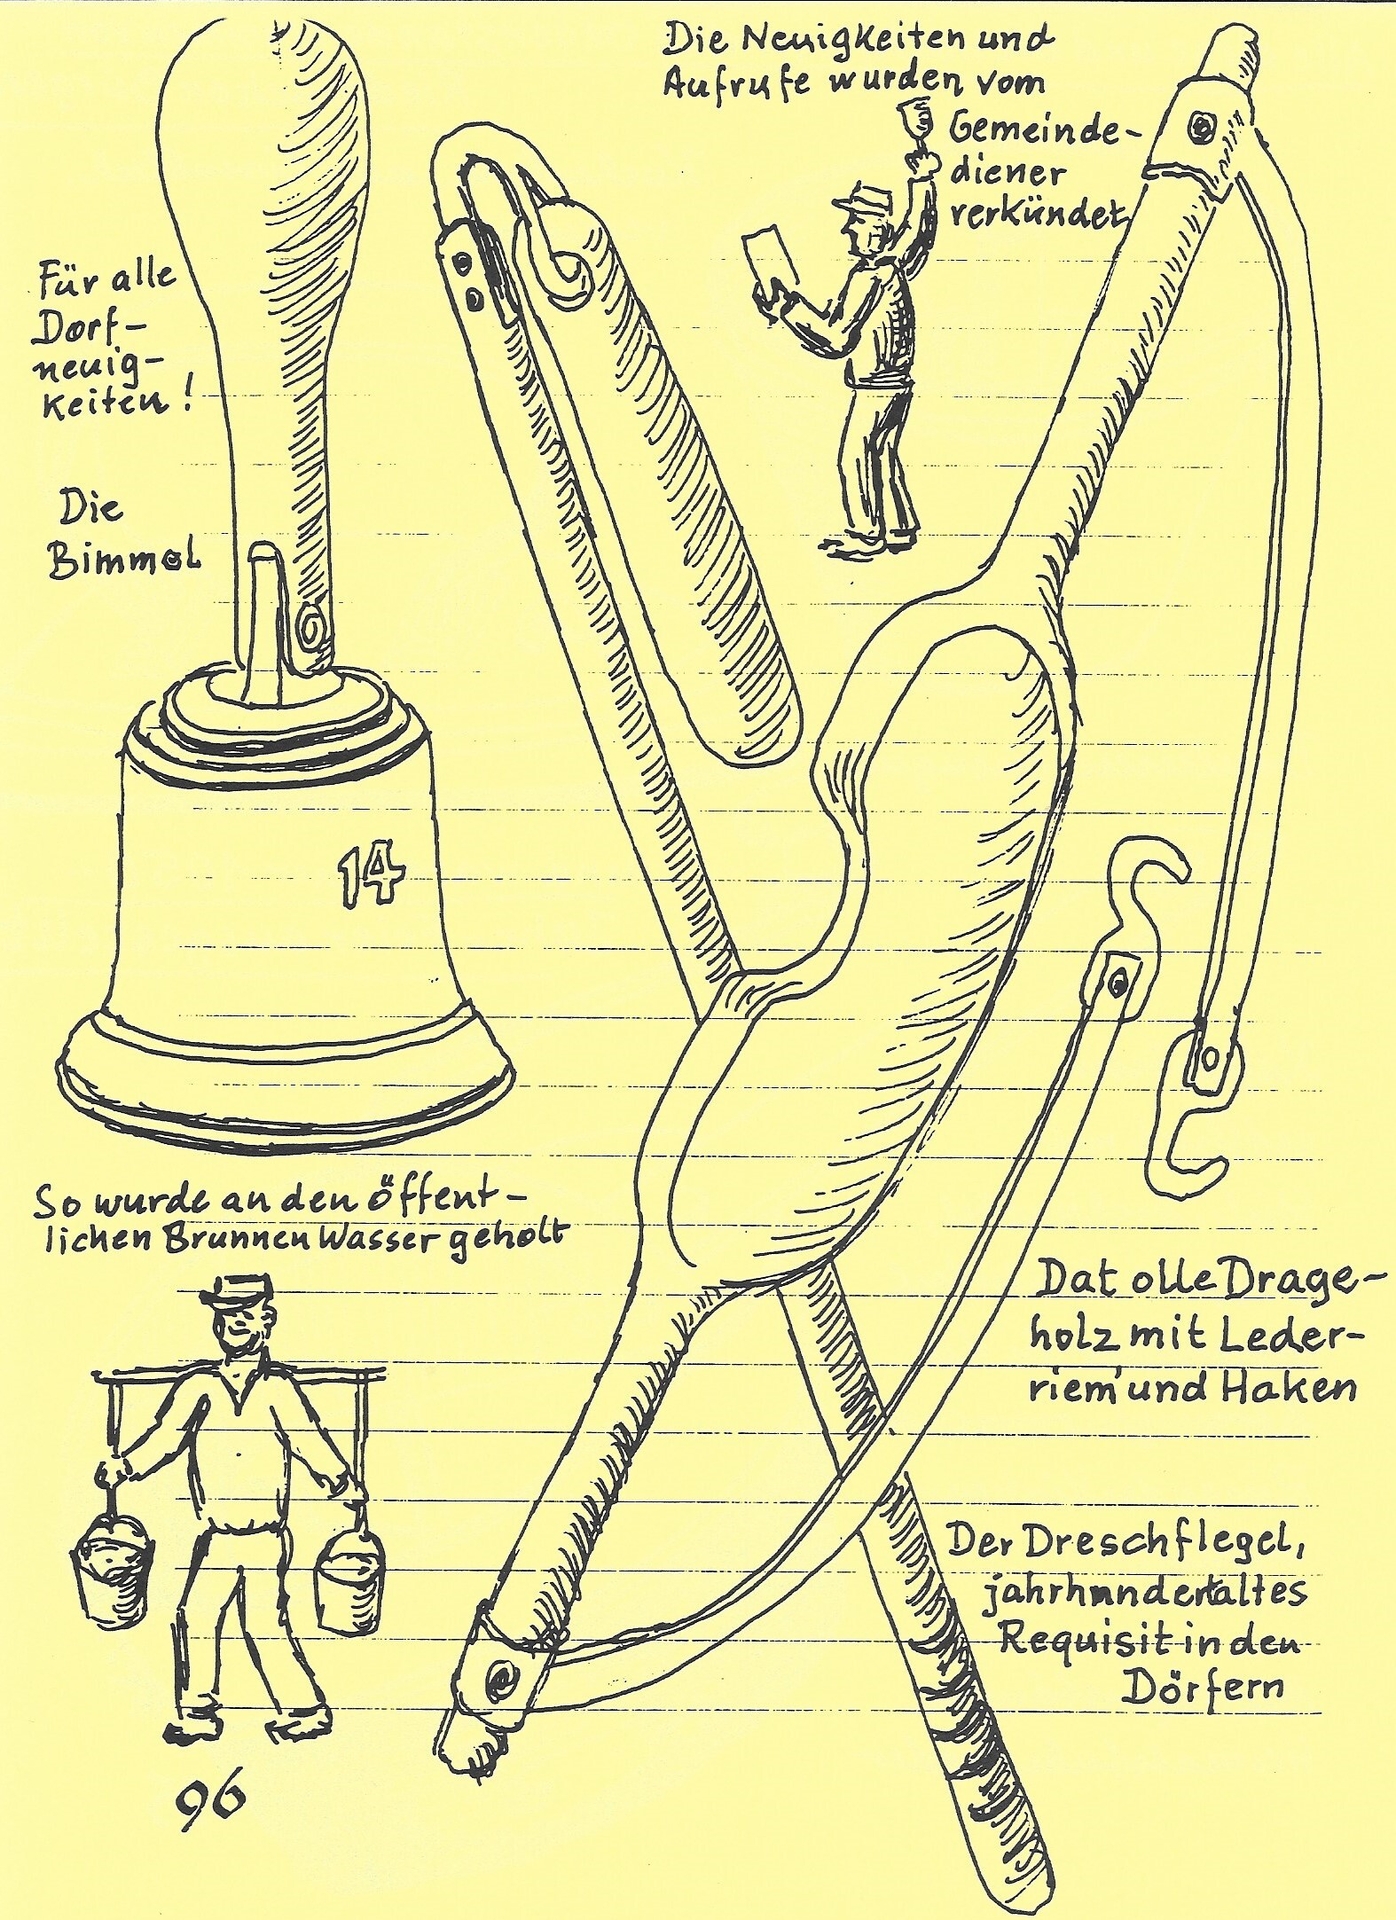 Die Neuigkeiten und
Aufrufe wurden vom
Gemeinde-
diener
verkündet
Für alle
Dorf-
neuig-
keiten!
Die
Bimmel
14
So wurde an den öffent-
lichen Brunnen Wasser geholt
Dat olle Drage-
holz mit Leder-
riem' und Haken
Der Dreschflegel,
jahrhundertaltes
Requisit in den
Dörfern
96